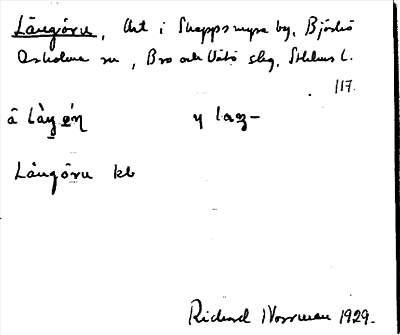 Långören, Ört i Skeppsmyra by, Björkö
Arholma sn, Bro och Vätö slg, Sthlms l.
117.
å làŋ ǿɳ y laŋ-
Långören kb
Richard Norrman 1929.